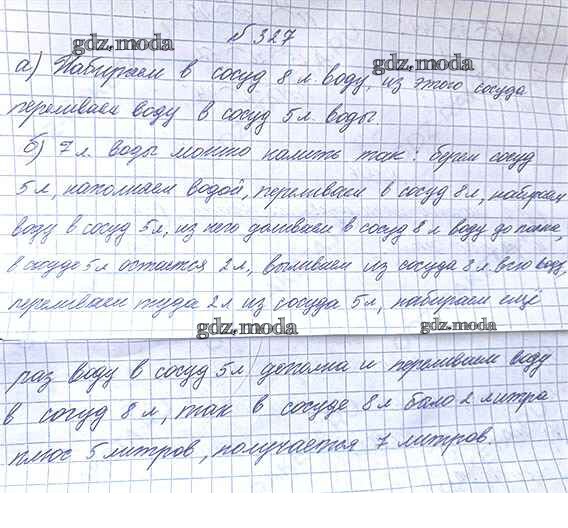 № 327
gdz.moda
gdz.moda
а) Набираем в сосуд 8 л воду, из этого сосуда
переливаем воду в сосуд 5 л воды.
б) 7 л. воды можно налить так: берем сосуд
5 л, наполняем водой, переливаем в сосуд 8 л, набираем
воду в сосуд 5 л, из него доливаем в сосуд 8 л воду до полна,
в сосуде 5 л остается 2 л, выливаем из сосуда 8 л всю воду,
переливаем туда 2 л из сосуда 5 л, набираем ещё
gdz.moda
gdz.moda
раз воду в сосуд 5 л дополна и переливаем воду
в сосуд 8 л, так в сосуде 8 л было 2 литра
плюс 5 литров, получается 7 литров.